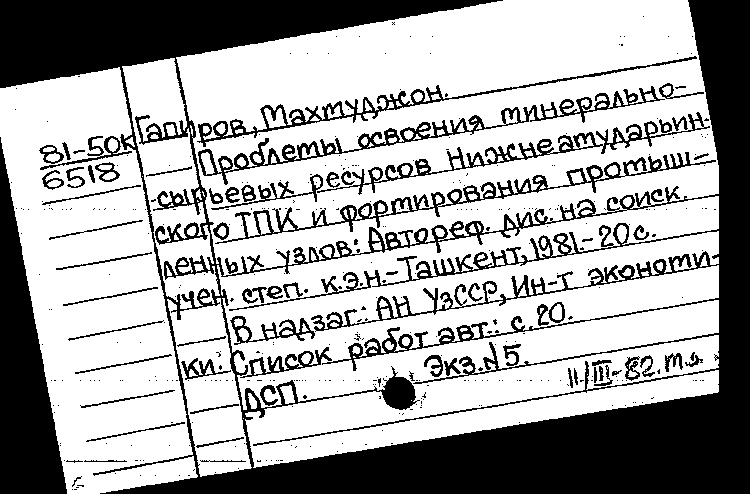 81-50к
6518
Гапиров, Махмуджон.
Проблемы освоения минерально-
сырьевых ресурсов Нижнеамударьин-
ского ТПК и формирования промыш-
ленных узлов: Автореф. дис. на соиск.
учен. степ. к.э.н.-Ташкент, 1981.-20с.
В надзаг.: АН УзССР, Ин-т экономи-
ки. Список работ авт.: с.20.
ДСП. Экз.№5.
11/III-82.